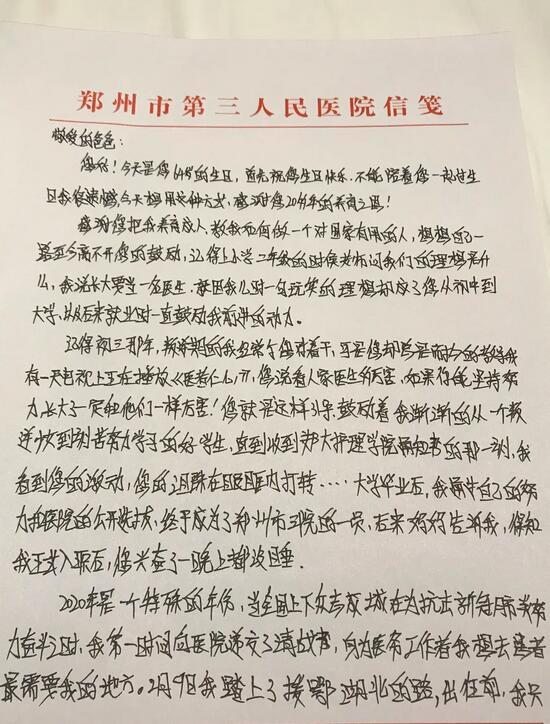 郑州市第三人民医院信笺
敬爱的爸爸:
您好!今天是您64岁的生日,首先祝您生日快乐.不能陪着您一起过生
日我很遗憾,今天想用这种方式,感谢您20多年的养育之恩!
感谢您把我养育成人,教我如何做一个对国家有用的人,想想自己一
路至今离不开您的鼓励,记得上小学二年级的时候老师问我们的理想是什
么,我说长大要当一名医生.就因我儿时一句玩笑的理想却成了您从初中到
大学,从后来就业时一直鼓励我前进的动力.
记得初三那年,叛逆期的我经常与您对着干,可是您却总是耐心的教导我
有一天电视上正在播放《医者仁心》,您说看人家医生多厉害.如果你能坚持努
力长大了一定和他们一样厉害!您就是这样引导鼓励着我渐渐的从一个叛
逆少女到刻苦努力学习的好学生,直到收到郑大护理学院通知书的那一刻,我
看到您的激动,您的泪珠在眼眶内打转····大学毕业后,我通过自己的努
力和医院的公开选拔,终于成为了郑州市三院的一员,后来妈妈告诉我,得知
我正式入职后,您兴奋了一晚上都没睡.
2020年是一个特殊的年份,当全国上下众志成城在为抗击新冠肺炎努
力奋斗时,我第一时间向医院递交了请战书,身为医务工作者我想去患者
最需要我的地方.2月9日我踏上了援鄂湖北的路,出征前,我只